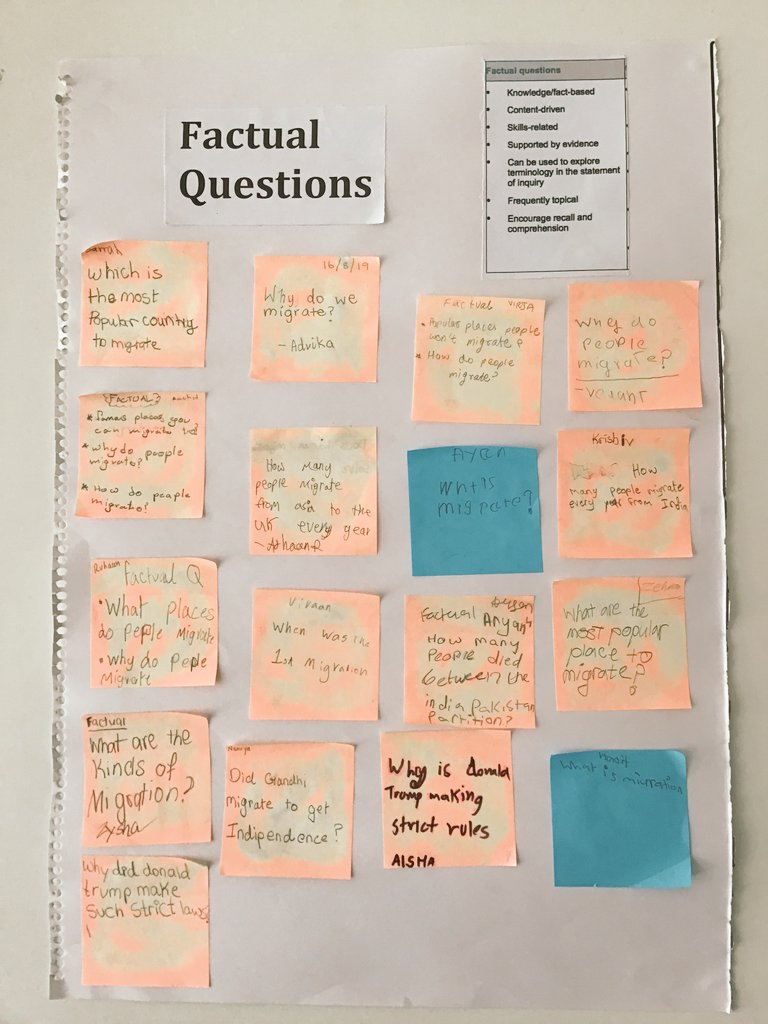 Factual
Questions
Factual questions
• Knowledge/fact-based
• Content-driven
• Skills-related
• Supported by evidence
• Can be used to explore
terminology in the statement
of inquiry
• Frequently topical
• Encourage recall and
comprehension
which is
the most
Popular country
to migrate
16/8/19
Why do we
migrate?
- Advika
Factual
• Popular places people
won't migrate?
* How do people
migrate?
Why do
people
migrate?
- Vedant
(FACTUAL)
* famous places you
can migrate to?
* why do people
migrate?
* How do people
migrate?
How Many
people Migrate
from asia to the
UK every year
- Athaan.R
What is
migrate?
Krishiv
How
many people migrate
every year from India
Ruhaan
factual Q
• What places
do peple Migrate
• Why do Peple
Migrate
Vivaan
When was the
1st Migration
Factual Aryan
How many
People died
between the
india Pakistan
Partition?
Zehra
What are the
most popular
place to
migrate?
Factual
What are the
Kinds of
Migration?
Zysha
Did Gandhi
migrate to get
Indipendence?
Why is donald
Trump making
strict rules
AISHA
What is migration
Why did donald
trump make
such strict laws?